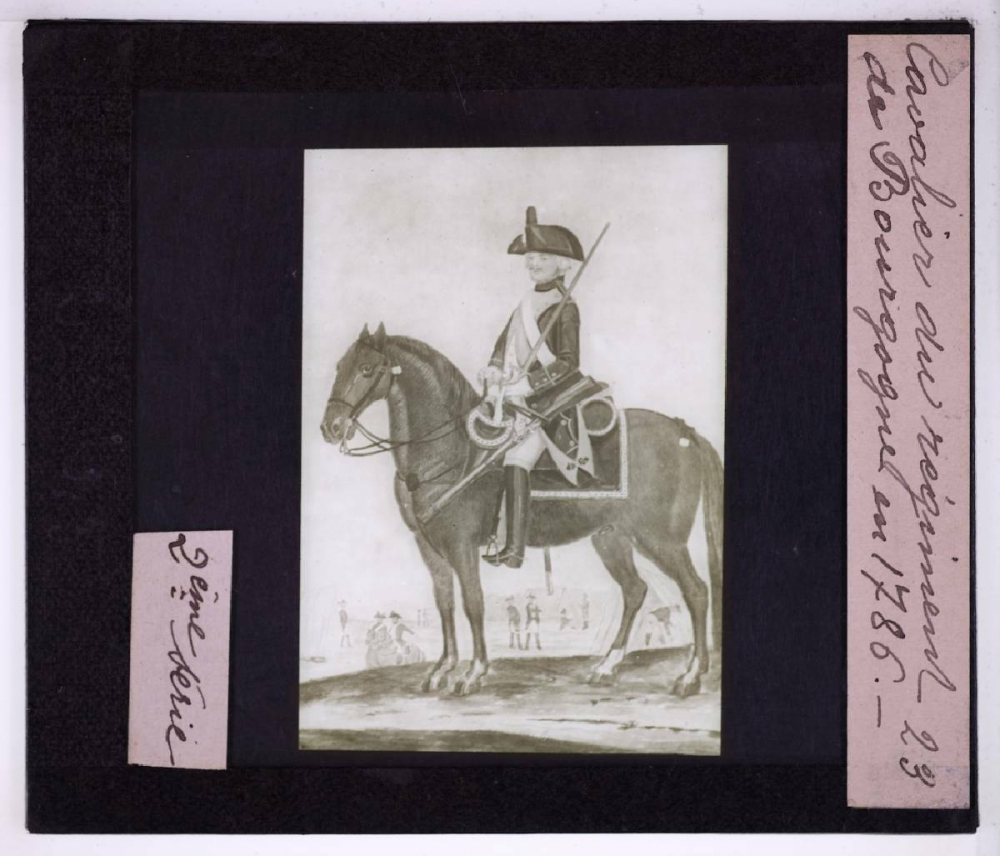 Cavalier du régiment 23
de Bourgogne en 1786.—
2ème Série